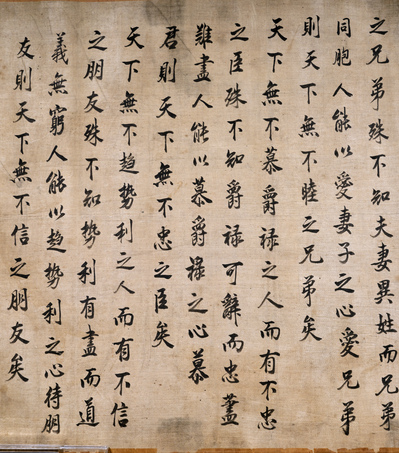 之兄弟殊不知夫妻異姓而兄弟
同胞人能以愛妻子之心愛兄弟
則天下無不睦之兄弟矣
天下無不慕爵祿之人而有不忠
之臣殊不知爵祿可辭而忠藎
難盡人能以慕爵祿之心慕
君則天下無不忠之臣矣
天下無不趨勢利之人而有不信
之朋友殊不知勢利有盡而道
義無窮人能以趨勢利之心待朋
友則天下無不信之朋友矣